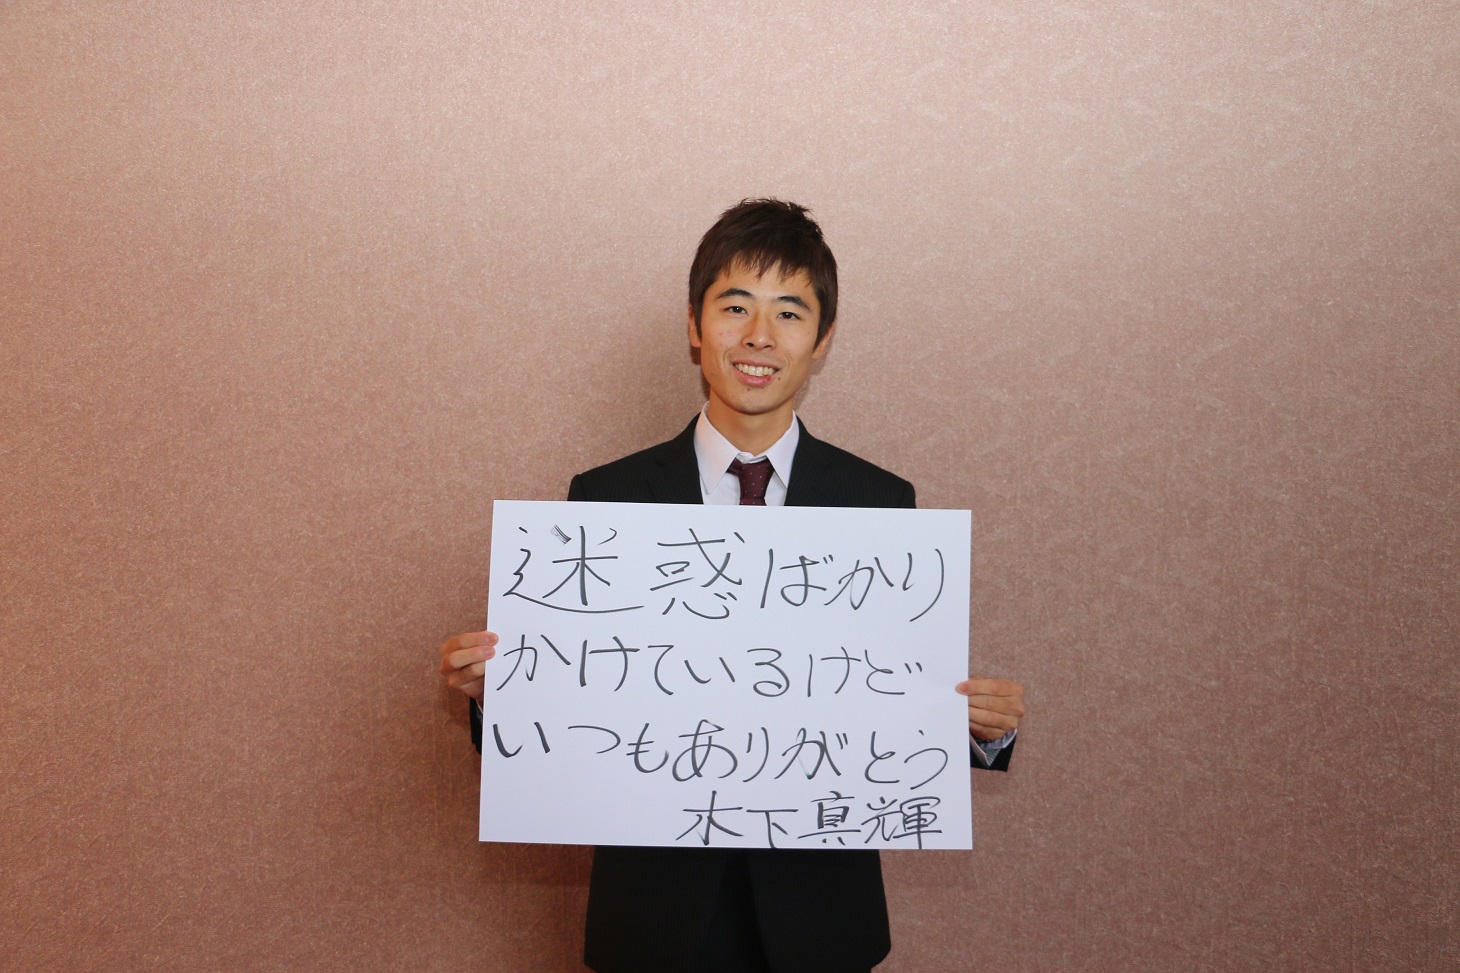 迷惑ばかり
かけているけど
いつもありがとう
木下真輝